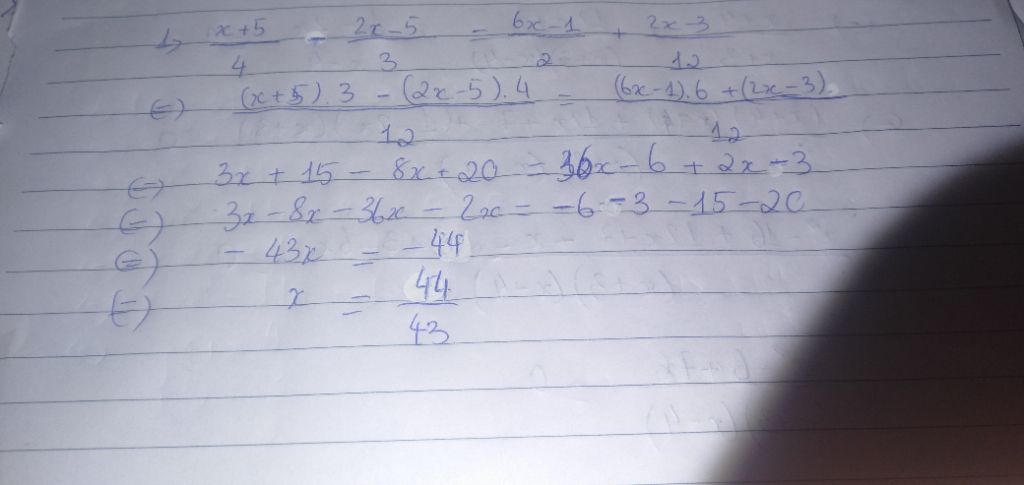 b, x+5 - 2x-5 = 6x-1 + 2x-3
4 3 2 12
⇔) (x+5).3 - (2x-5).4 = (6x-1).6 + (2x-3).
12 12
⇔) 3x + 15 - 8x + 20 = 36x - 6 + 2x - 3
⇔) 3x - 8x - 36x - 2x = -6 - 3 - 15 - 20
⇔) - 43x = - 44
⇔) x = 44
43